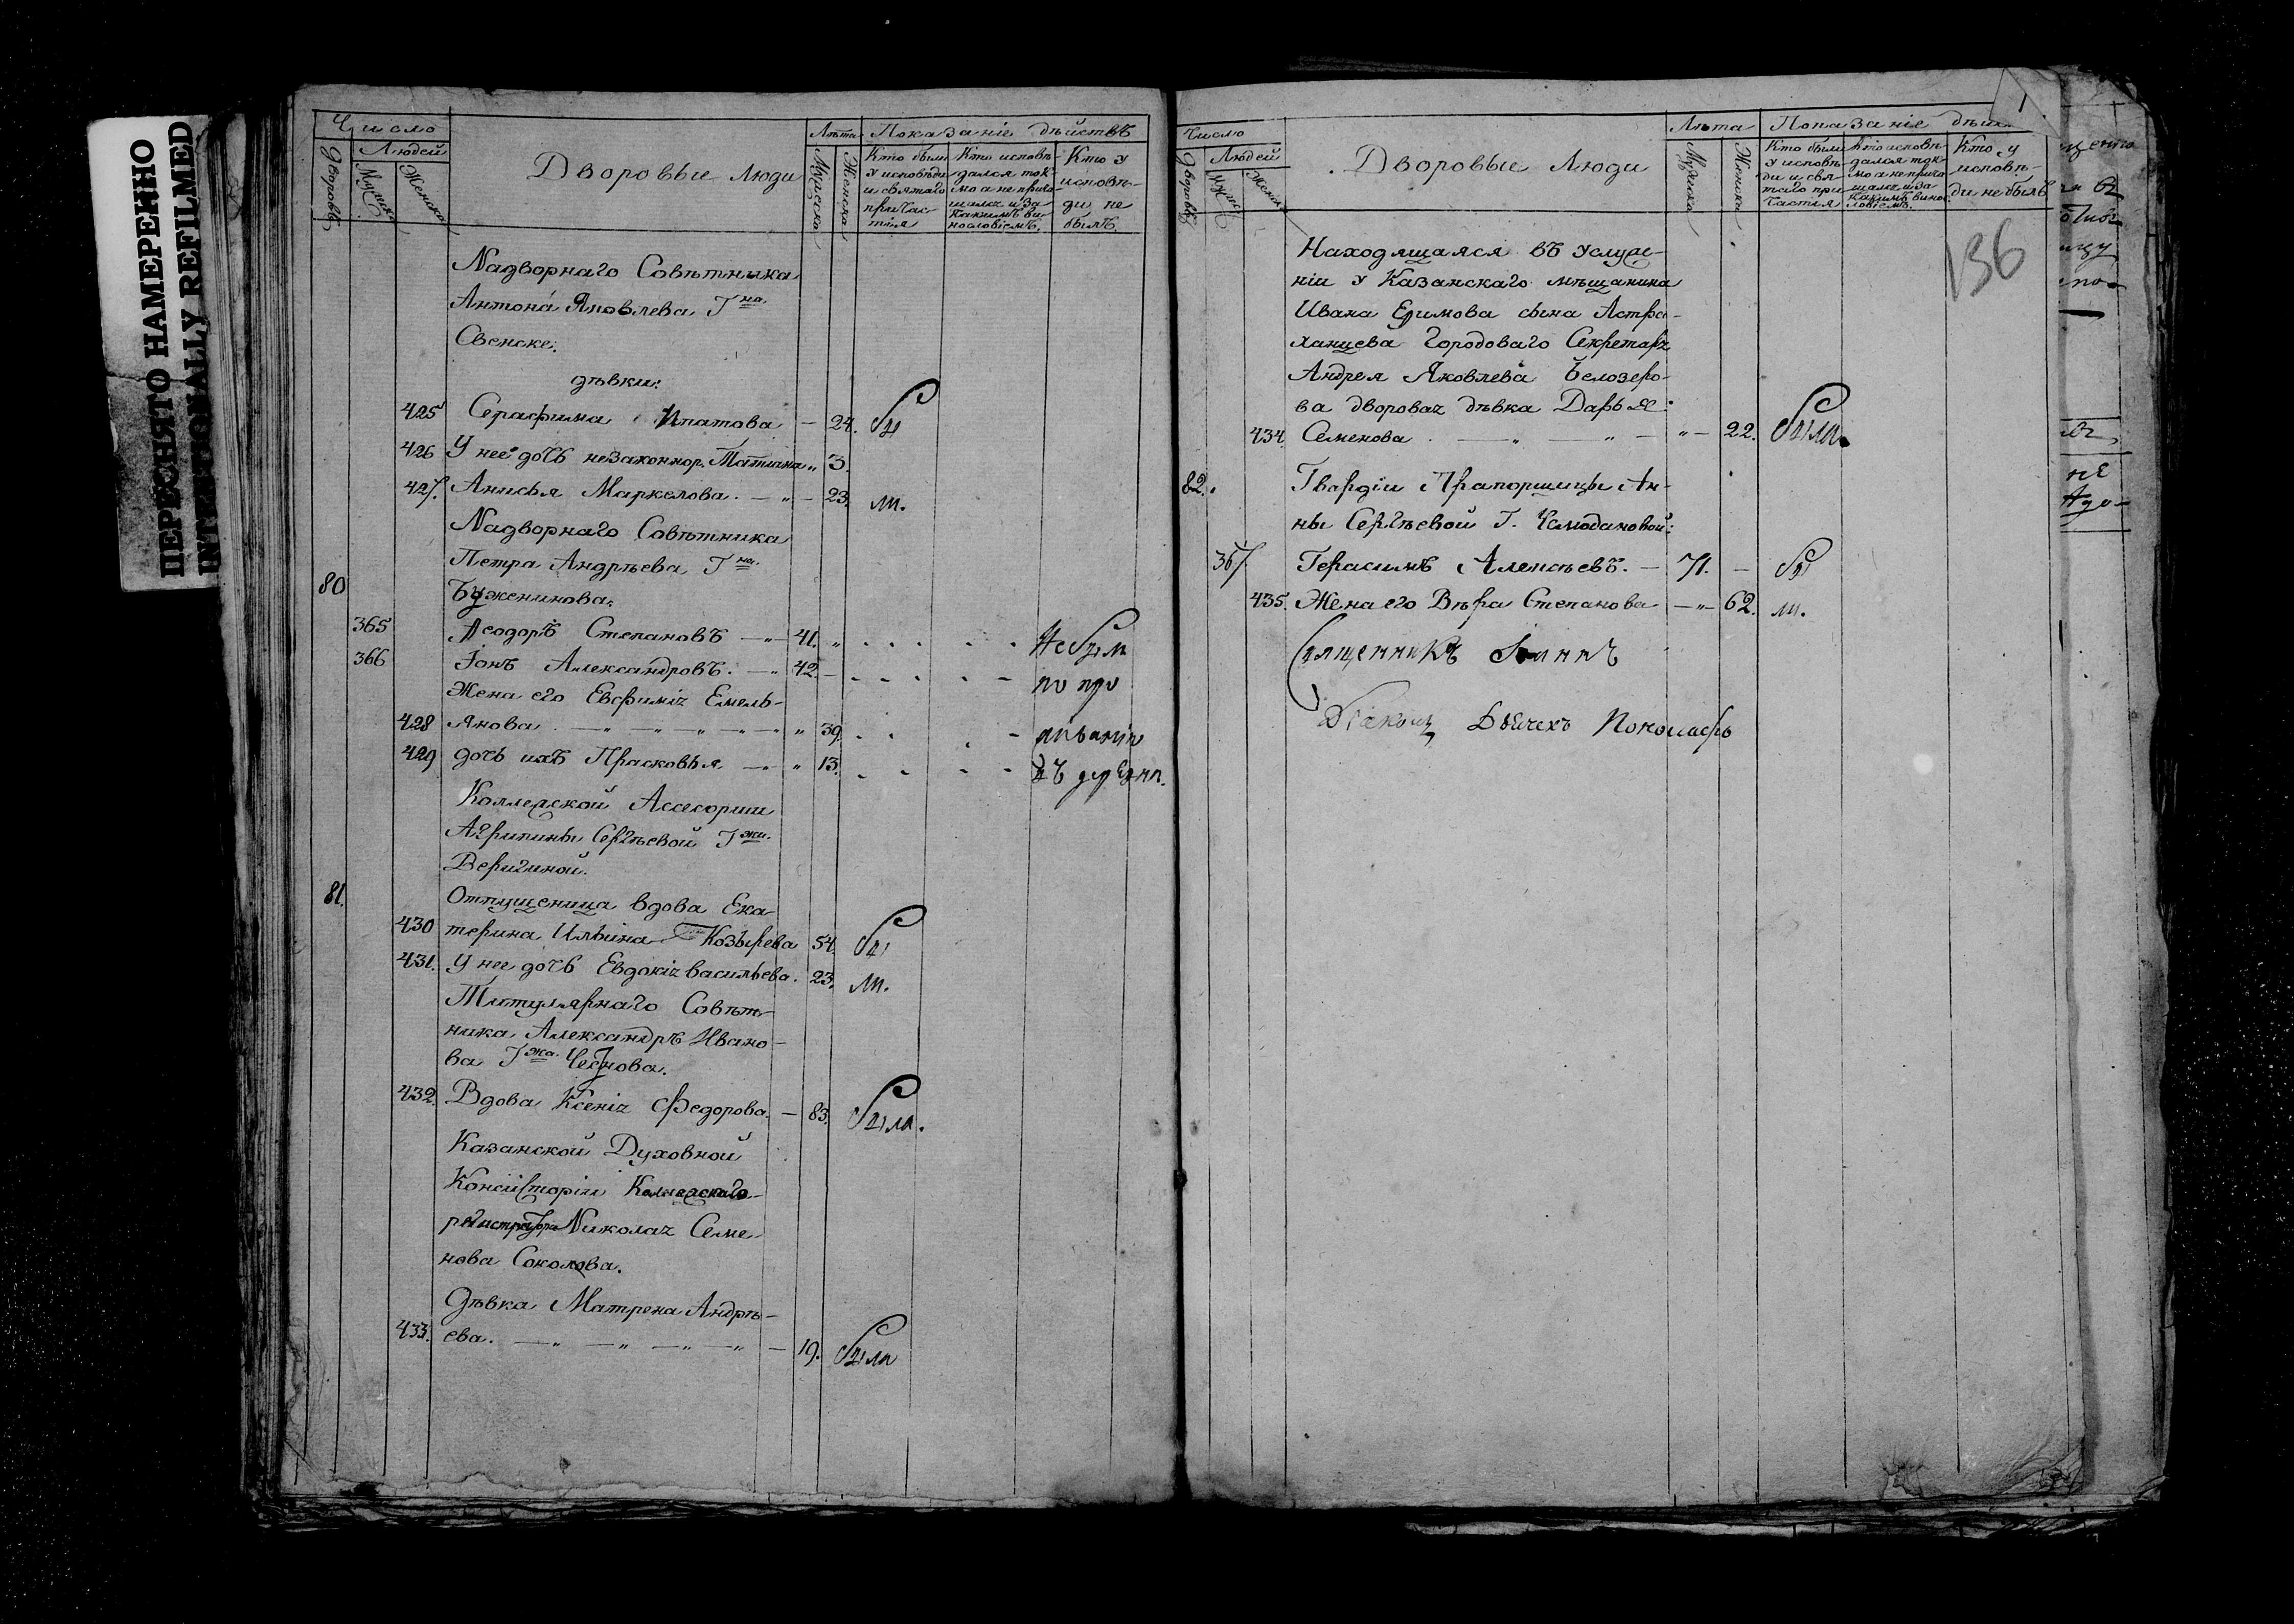 ПЕРЕСНЯТО НАМЕРЕННО
INTENTIONALLY REFILMED
Число
Людей
Дворовъ
Мужска
Женска
Дворовые Люди
Лѣта
Мужска
Женска
Показаніе дѣйствъ
Кто были у исповѣди и святаго причастія
Кто исповѣдался токмо а не причащался и за какимъ винословіемъ.
Кто у исповѣди не былъ.
Надворнаго Совѣтника
Антона Яковлева Г на
Свенске.
дѣвки:
425 Серафима Ипатова — 24. бы
426 У нее дочь незаконнор. Татиана „ 3.
427. Анисья Маркелова. — „ — 23. ли.
Надворнаго Совѣтника
Петра Андрѣева Г на.
80 Буженинова.
365 Ѳеодоръ Степановъ — „ — 41. „ Не были
366 Іонъ Александровъ. — „ 42. — по про
Жена его Евфимія Емель-
428 янова. — „ — „ — „ — „ 39.
429 дочь ихъ Прасковья — „ — „ 13. въ
Коллежской Ассесорши
Агрипины Сергѣевой Г жи.
Веригиной.
81. Отпущеница вдова Ека-
430 терина Ильина Козырева 54. бы
431. У нее дочь Евдокія Васильева. 23. ли.
Титулярнаго Совѣт-
ника Александръ Ивано-
ва Г жа. Чеснова.
432. Вдова Ксенія Федорова. — 83. была.
Казанской Духовной
Консисторіи Коллежскаго
регистратора Николая Семе-
нова Соколова.
Дѣвка Матрена Андрѣ-
433. ева. — „ — „ — „ — „ — 19. была
Число
Людей
Дворовъ
Мужс
Женска
Дворовые Люди
Лѣта
Мужска
Женска
Показаніе дѣйс
Кто были у исповѣди и святаго причастія
Кто исповѣдался токмо а не причащался и за какимъ виносло­віемъ.
Кто у исповѣди не былъ
136
Находящаяся въ услуже-
ніи у Казанскаго мѣщанина
Ивана Ефимова сына Астра-
ханцева Городоваго Секретаря
Андрея Яковлева Белозеро-
ва дворовая дѣвка Дарья
434. Семенова. — „ — „ — „ — 22. была.
82. Гвардіи Прапорщицы Ан-
ны Сергѣевой Г. Чемодановой:
367. Герасимъ Алексѣевъ. — 71. — бы
435. Жена его Вѣра Степанова — „ — 62. ли.
Священникъ Іоаннъ
Пономарь